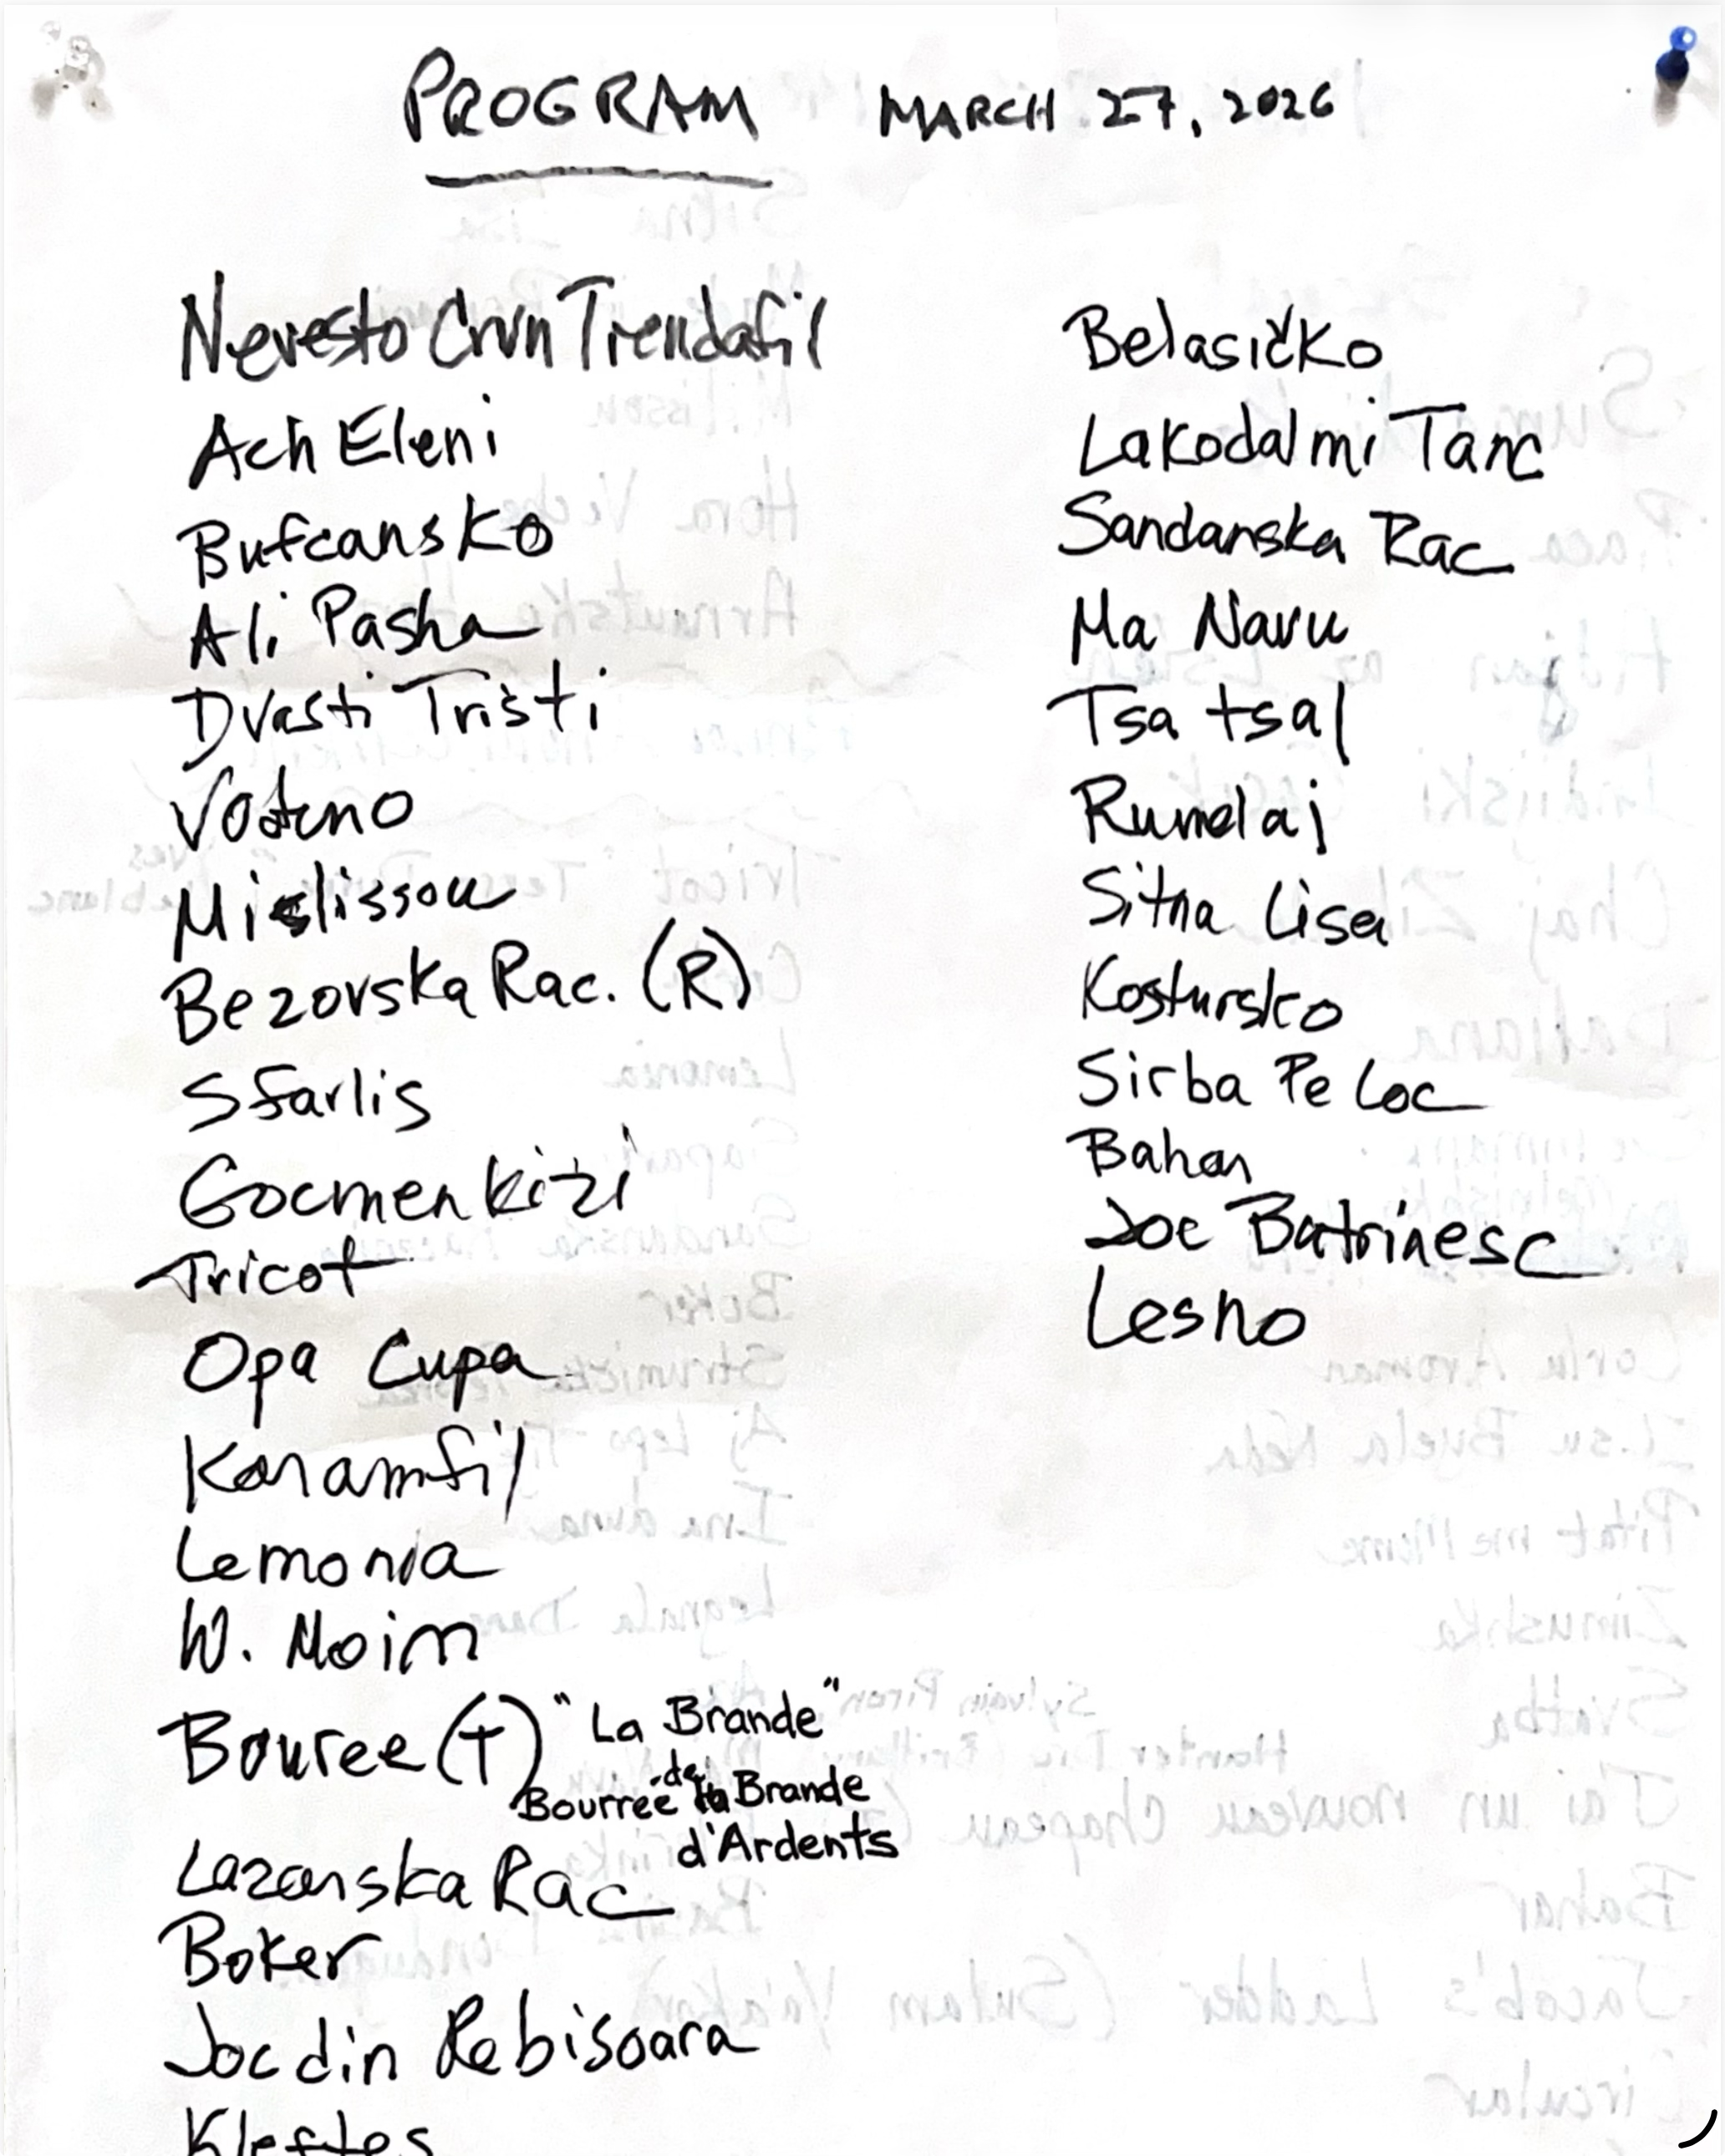 PROGRAM MARCH 27, 2026
Nevesto Crvn Trendafil
Ach Eleni
Bufcansko
Ali Pasha
Dvasti Tristi
Voteno
Mislissou
Bezovska Rac. (R)
Sfarlis
Gocmen kizi
Tricot
Opa Cupa
Karamfil
Lemonia
W. Moim
Bouree (T) "La Brande"
Bourrée de la Brande
d'Ardents
Lazanska Rac
Boker
Joc din Rebisoara
Kleftes
Belasičko
Lakodalmi Tanc
Sandanska Rac
Ma Navu
Tsa tsal
Rumelaj
Sitna Lisa
Kostursko
Sirba Pe Loc
Bahar
Joc Batrinesc
Lesno